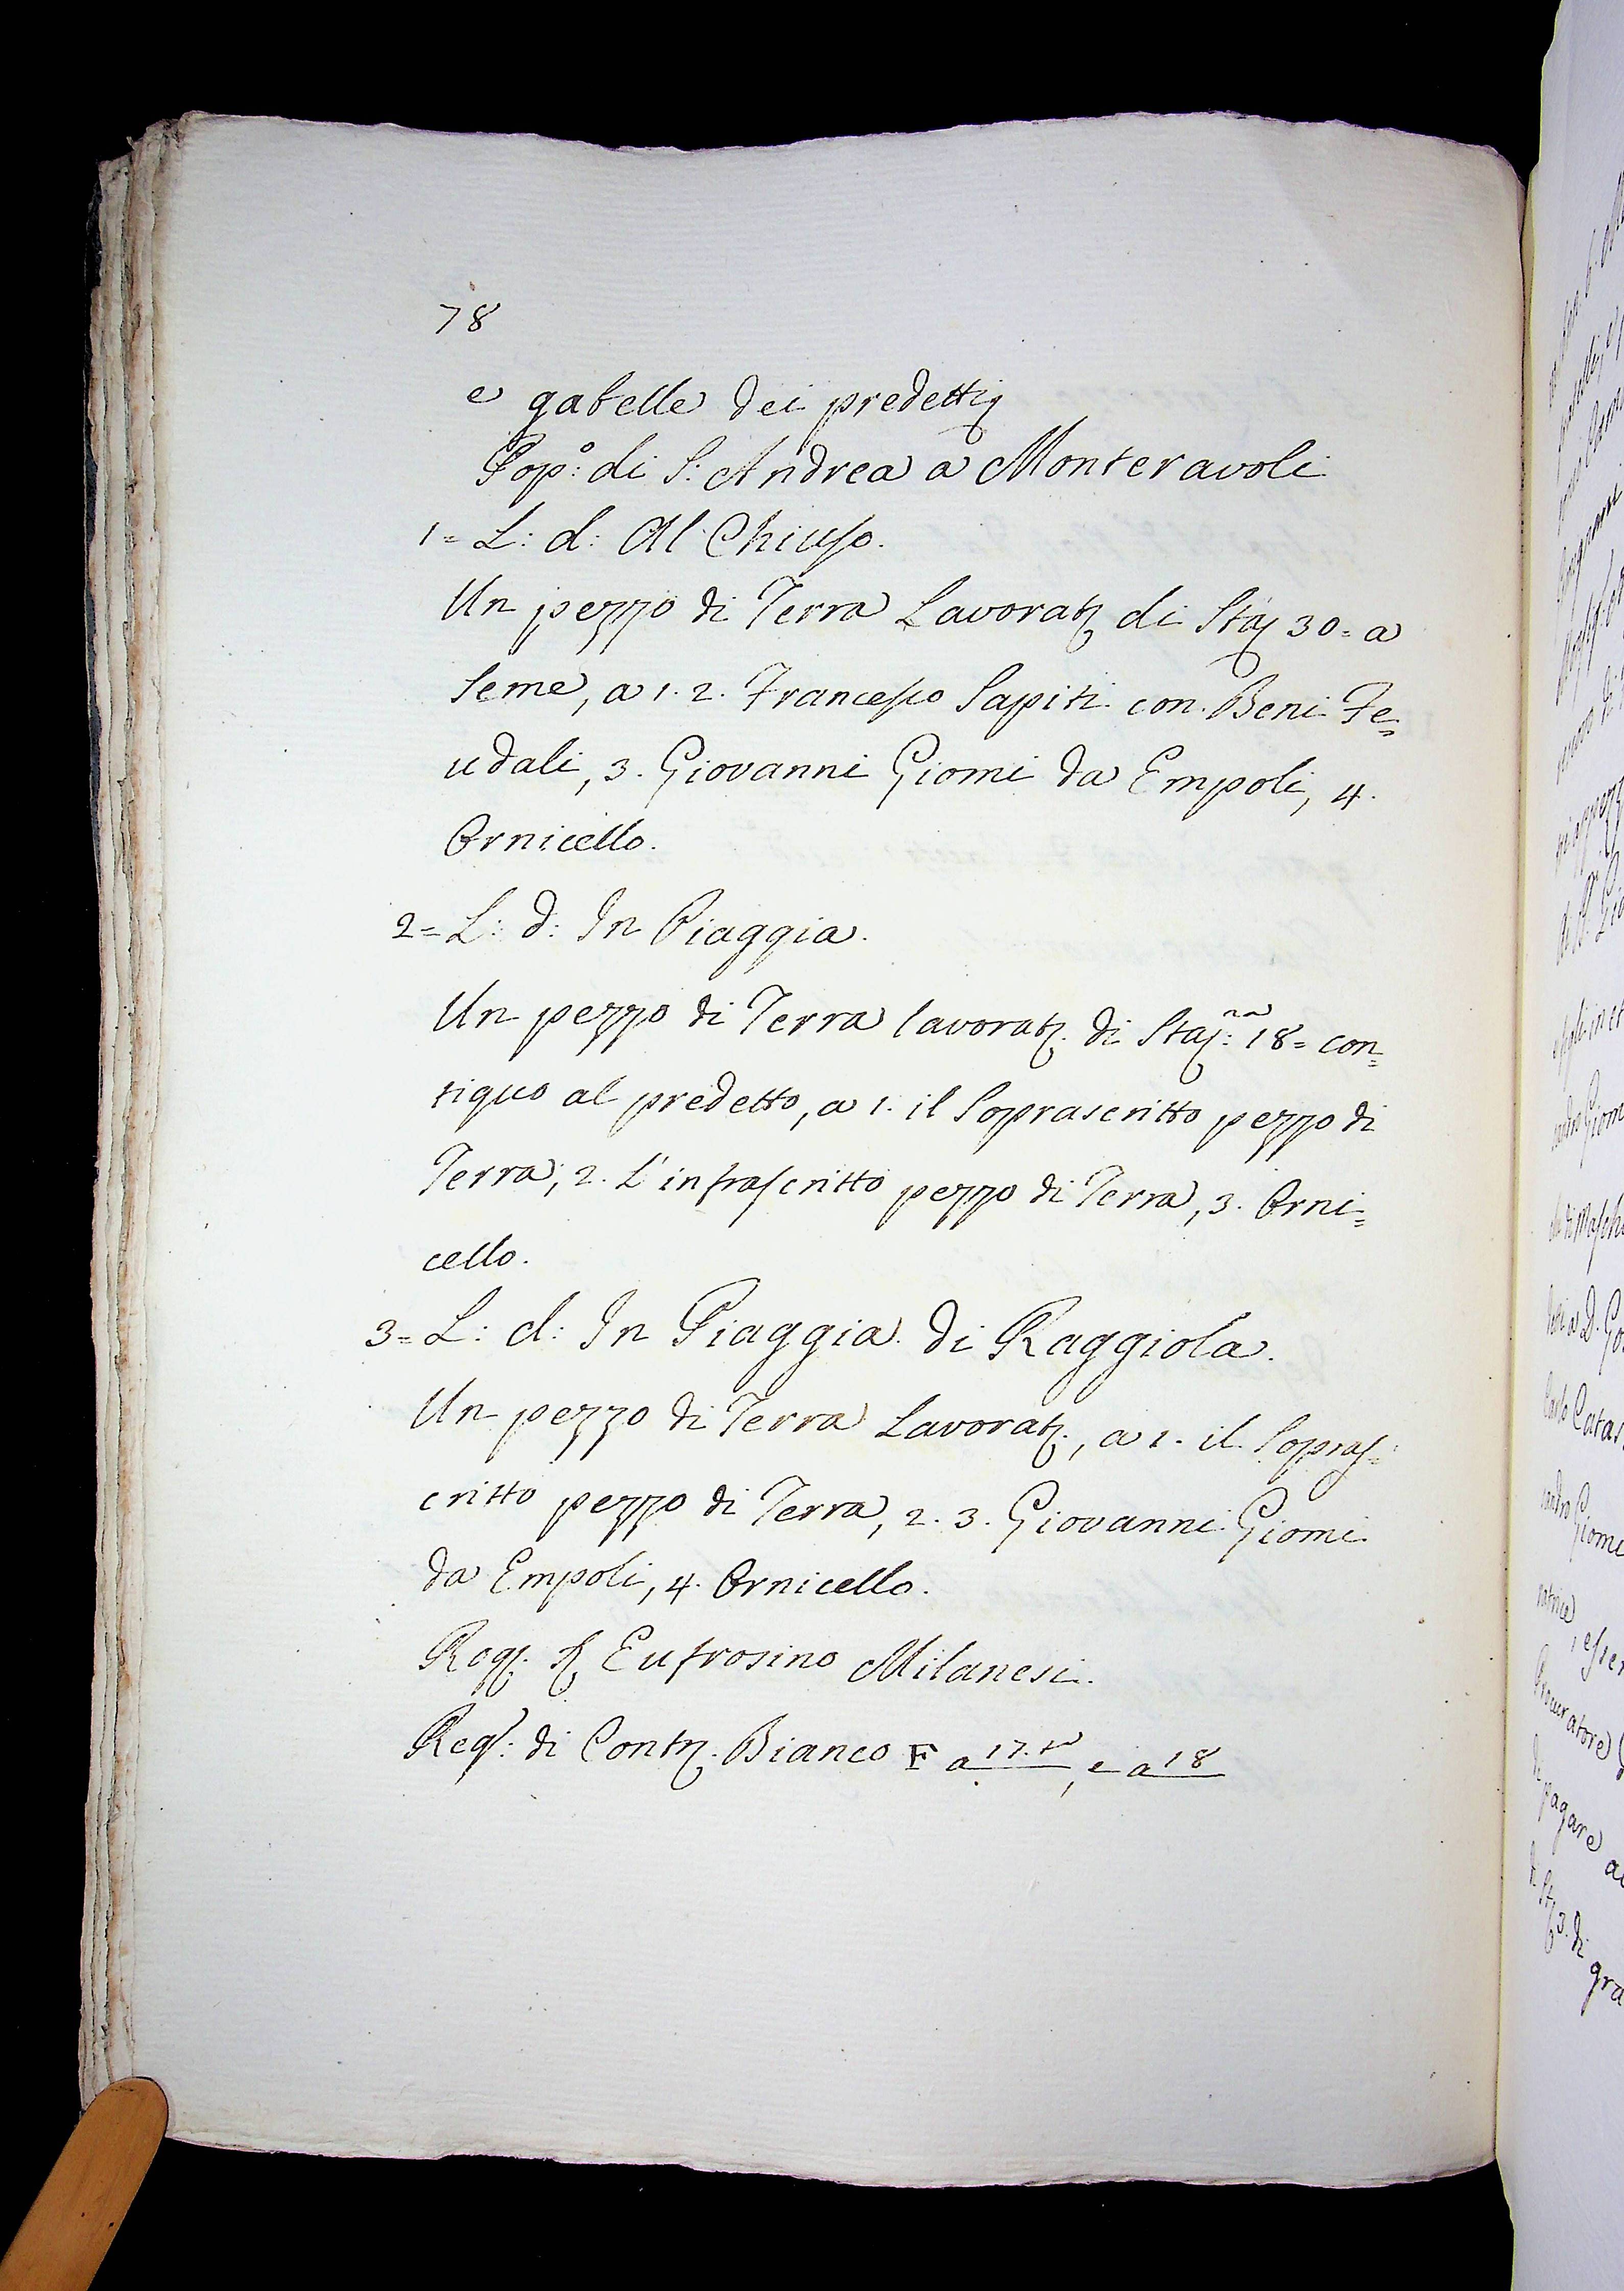 78
e gabelle dei predetti
Pop.o: di S: Andrea a Monteravoli
1= L: d: Al Chiuso.
Un pezzo di Terra Lavorat. di Sta 30= a
Seme, a 1. 2. Francesco Sapiti con Beni Fe=
udali, 3. Giovanni Giomi da Empoli, 4.
Ornicello.
2= L: d: In Piaggia.
Un pezzo di Terra lavorat. di Sta:na 18= con=
tiguo al predetto, a 1. il Soprascritto pezzo di
Terra; 2. L'infrascritto pezzo di Terra, 3. Orni=
cello.
3= L: d: In Piaggia di Raggiola.
Un pezzo di Terra Lavorat., a 1. il Sopras=
critto pezzo di Terra, 2. 3. Giovanni Giomi
da Empoli, 4. Ornicello.
Rog. Eufrosino Milanesi.
Reg: di Contr. Bianco F a 17.t, e a 18